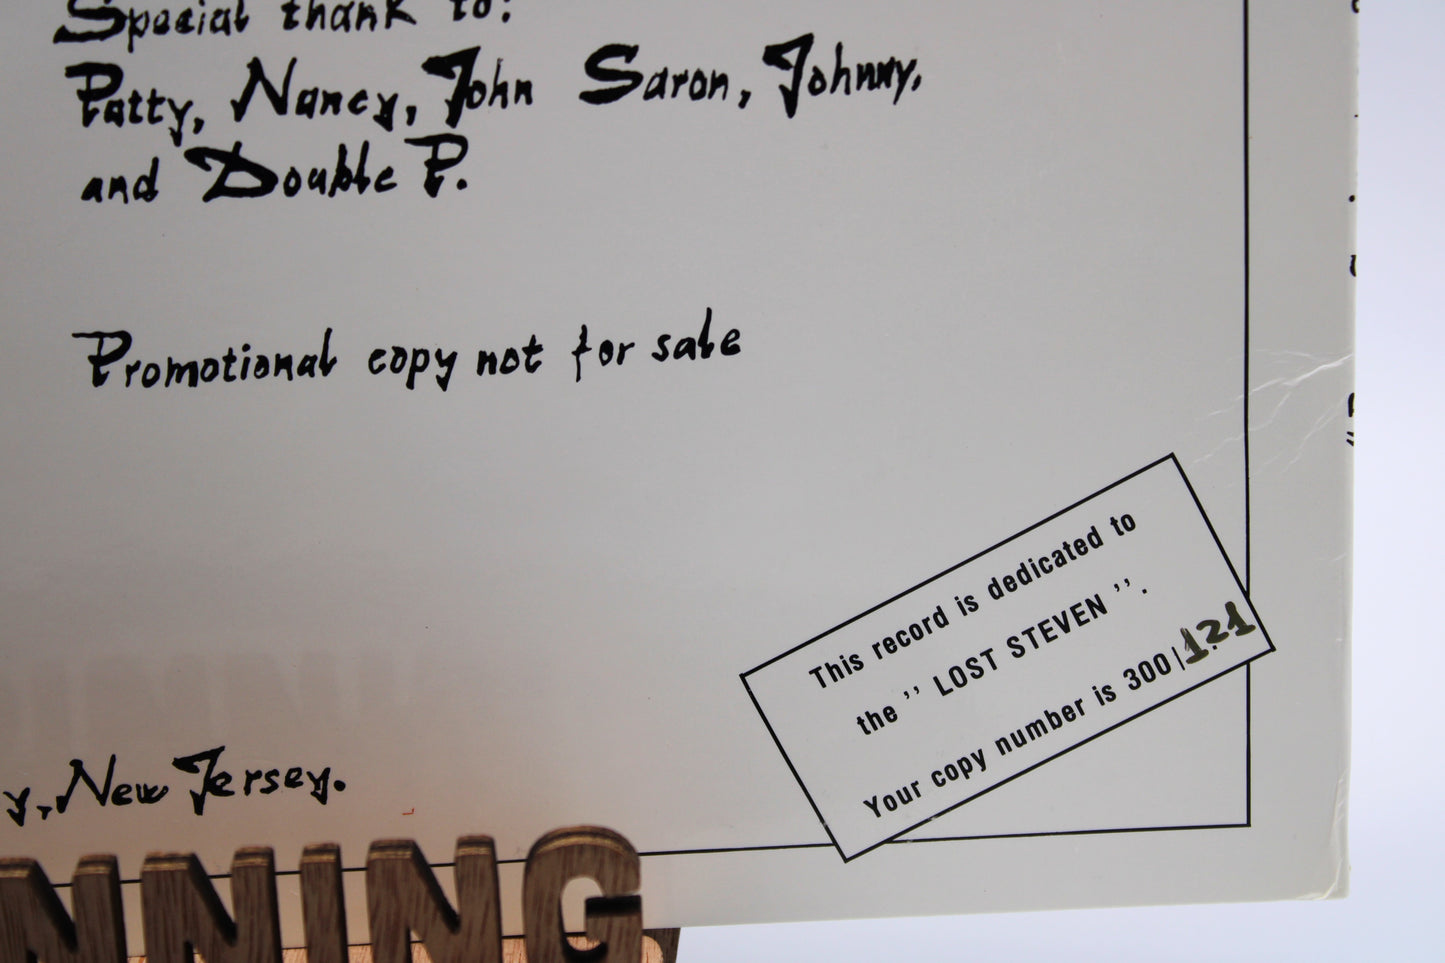 Special thank to:
Patty, Nancy, John Saron, Johnny,
and Double P.
Promotional copy not for sale
This record is dedicated to
the '' LOST STEVEN ''.
Your copy number is 300|121
y, New Jersey.
NNING